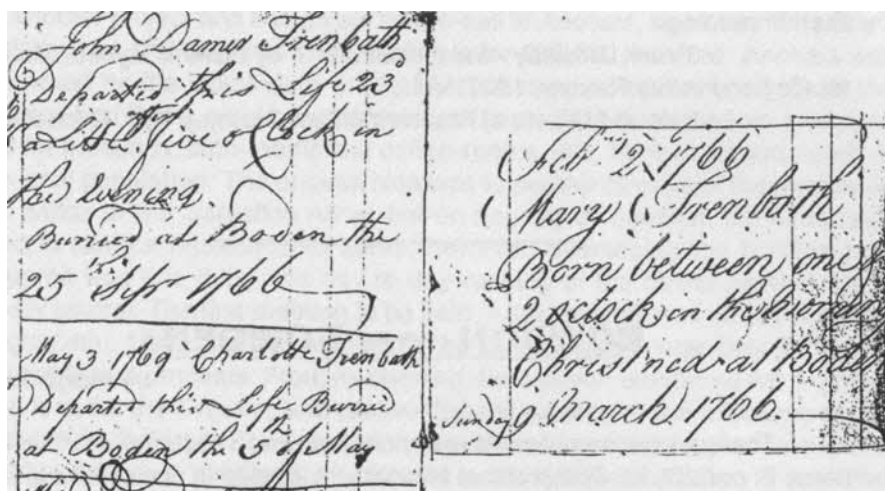 John James Trenbath
Departed this Life 23rd
Five o Clock in
the Evening
Buried at Boden the
25th 1766
May 3 1769 Charlotte Trenbath
Departed this Life Buried
at Boden the 5th of May
12 1766
Mary Trenbath
Born between one &
2 oclock in the Morn
Christned at Boden
Sunday 9 March 1766